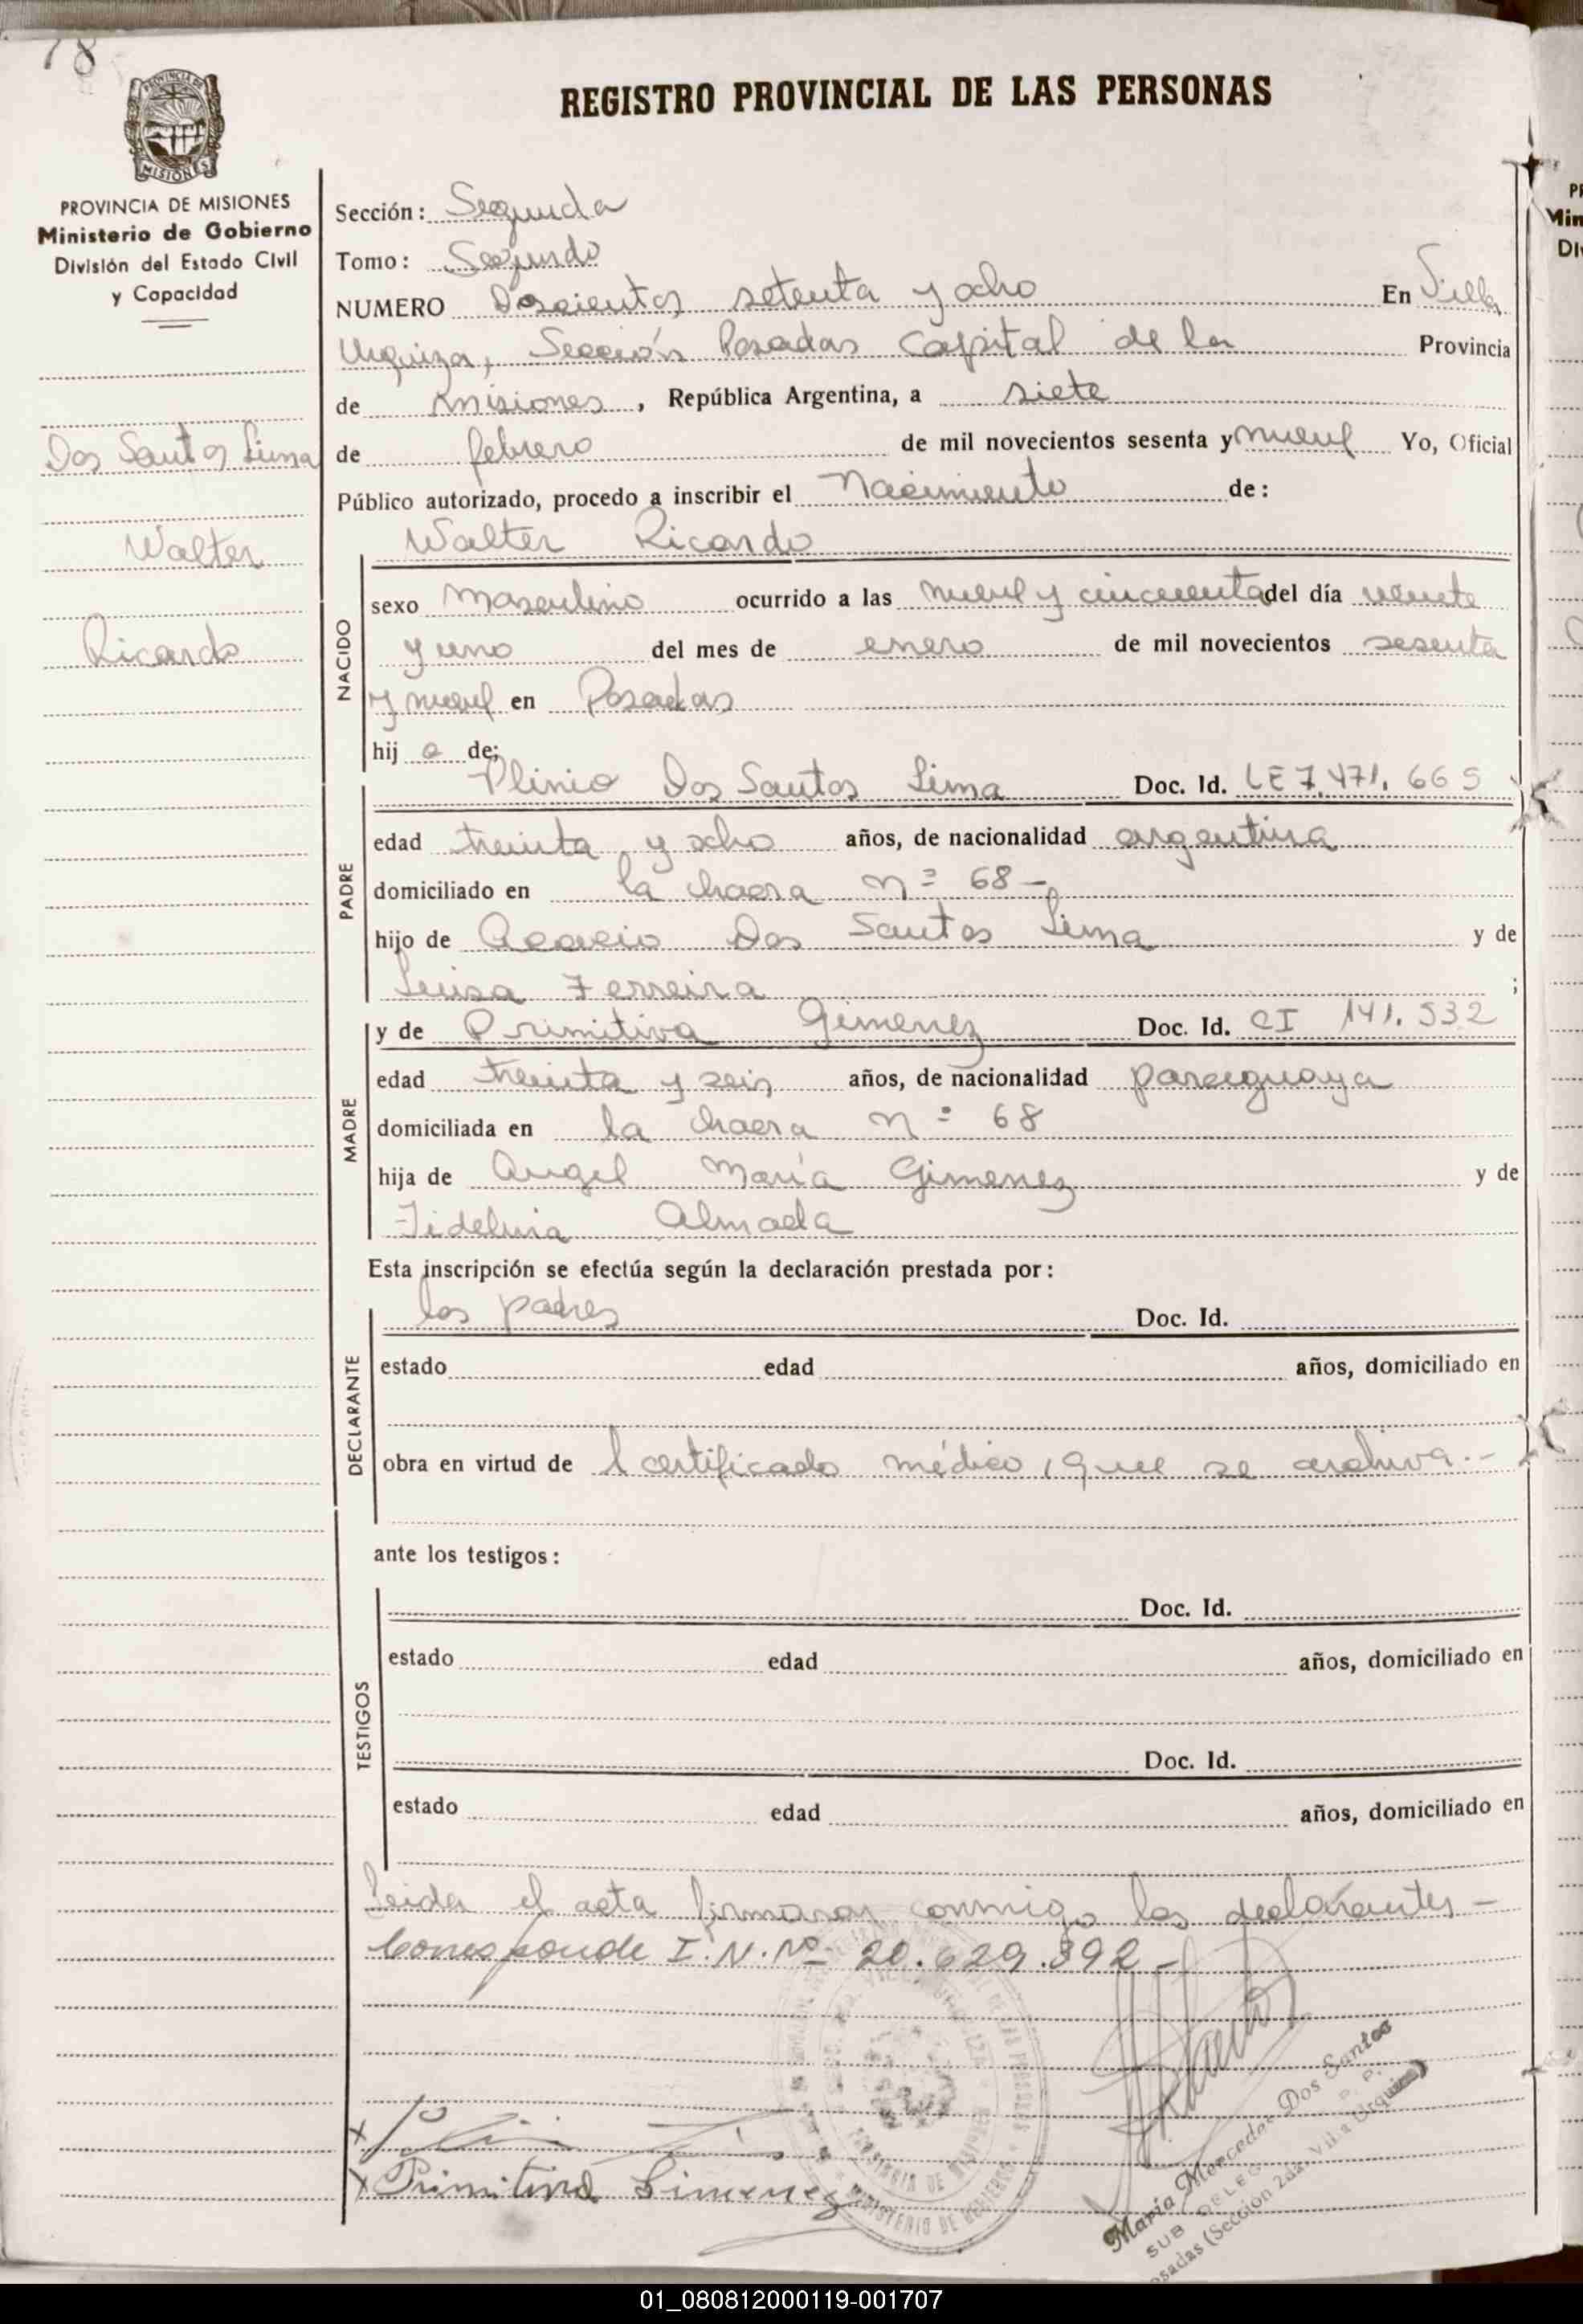 78
REGISTRO PROVINCIAL DE LAS PERSONAS
PROVINCIA DE MISIONES
MISIONES
PROVINCIA DE MISIONES
Ministerio de Gobierno
División del Estado Civil
y Capacidad
Dos Santos Lima
Walter
Ricardo
Sección: Segunda
Tomo: Segundo
NUMERO Doscientos setenta y ocho En Villa
Urquiza, Sección Posadas Capital de la Provincia
de misiones, República Argentina, a siete
de febrero de mil novecientos sesenta y nueve Yo, Oficial
Público autorizado, procedo a inscribir el Nacimiento de:
Walter Ricardo
NACIDO
sexo masculino ocurrido a las nueve y cincuenta del día veinte
y uno del mes de enero de mil novecientos sesenta
y nueve en Posadas
hij o de;
PADRE
Plinio Dos Santos Lima Doc. Id. LE 7.471.665
edad treinta y ocho años, de nacionalidad argentina
domiciliado en la chacra nº 68-
hijo de Acacio Dos Santos Lima y de
Luisa Ferreira ;
MADRE
y de Primitiva Gimenez Doc. Id. CI 141.532
edad treinta y seis años, de nacionalidad paraguaya
domiciliada en la chacra nº 68
hija de Angel María Gimenez y de
Fidelina Almada
Esta inscripción se efectúa según la declaración prestada por:
DECLARANTE
los padres Doc. Id.
estado edad años, domiciliado en
obra en virtud de l certificado médico, que se archiva.-
ante los testigos:
TESTIGOS
Doc. Id.
estado edad años, domiciliado en
Doc. Id.
estado edad años, domiciliado en
Leida el acta firmaron conmigo los declarantes -
Corresponde I.N.Nº 20.629.392-
x
x Primitiva Gimenez
MINISTERIO DE GOBIERNO
PROVINCIA DE MISIONES
María Mercedes Dos Santos
SUB DELEG. R. P.
osadas (Sección 2da. Villa Urquiza)
01_080812000119-001707